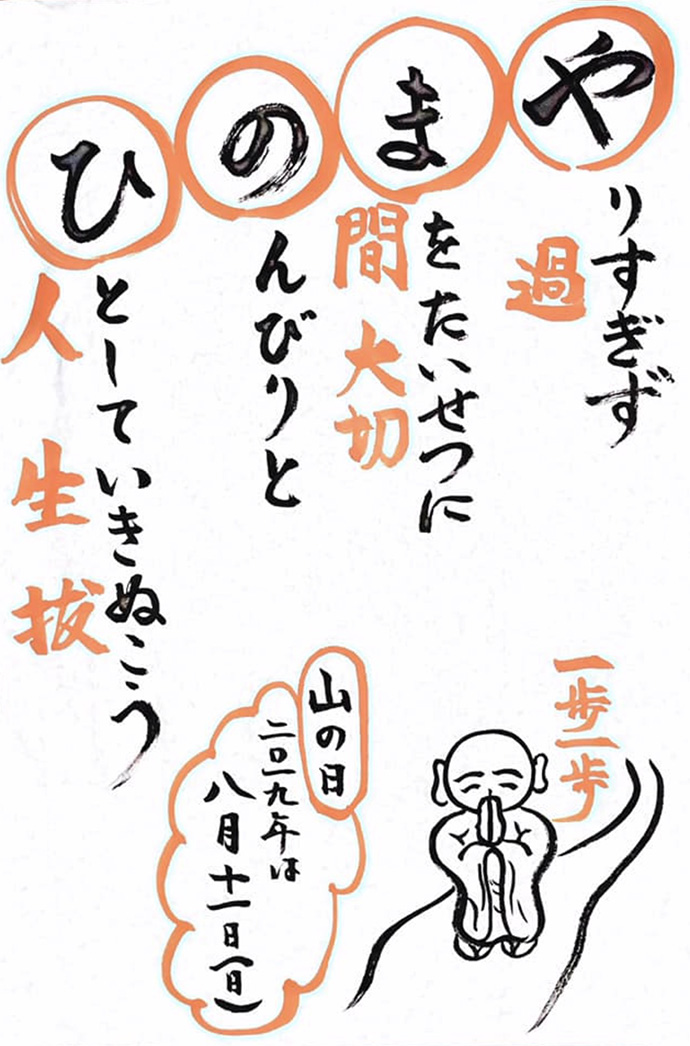 やりすぎず
過
まをたいせつに
間 大切
のんびりと
ひとしていきぬこう
人 生 抜
一歩一歩
山の日
二〇一九年は
八月十一日(日)